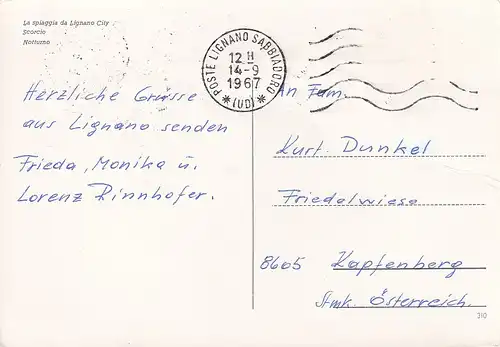 La spiaggia da Lignano City
Scorcio
Notturno
POSTE LIGNANO SABBIADORO
12 H
14-9
1967
* (UD) *
Herzliche Grüsse
aus Lignano senden
Frieda, Monika u.
Lorenz Rinnhofer.
An Fam.
Kurt. Dunkel
Friedelwiese
8605 Kapfenberg
Stmk. Österreich.
310